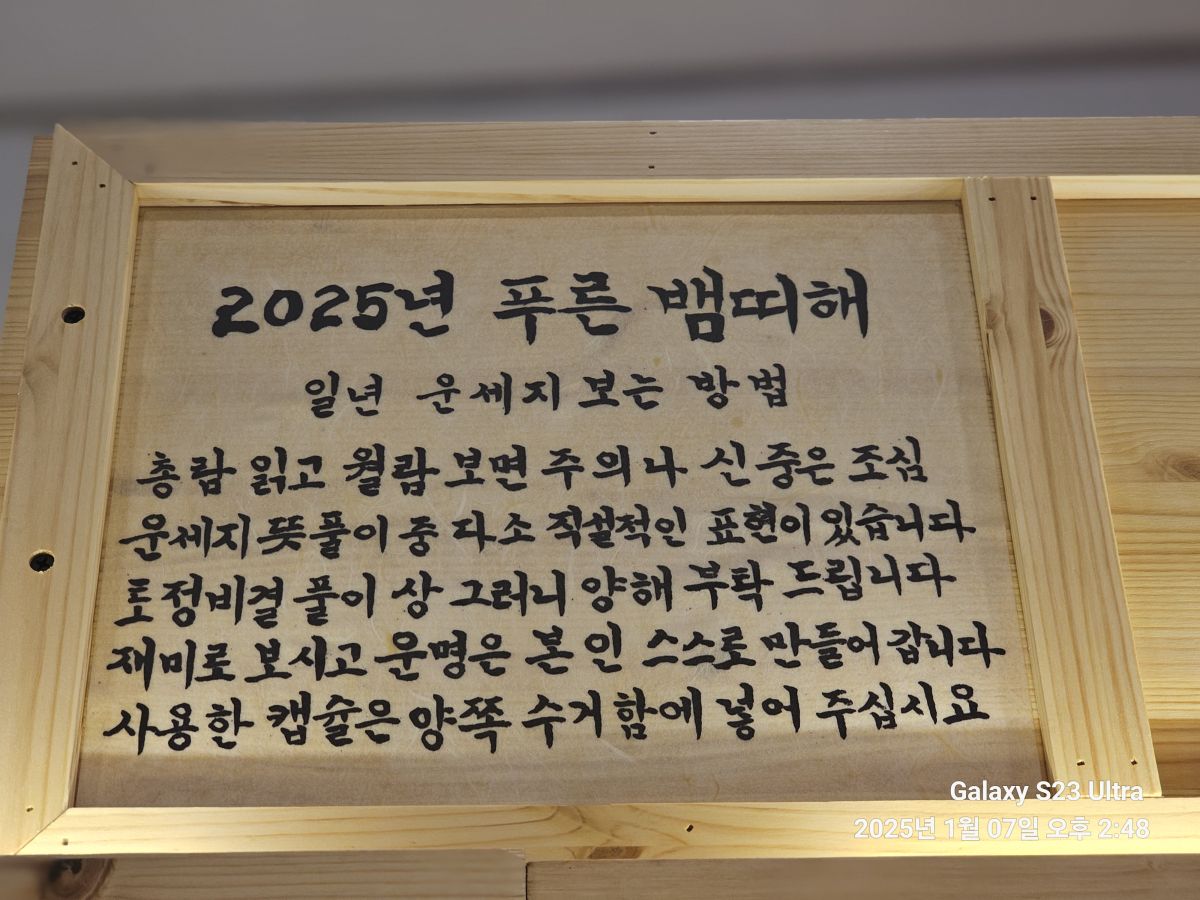 2025년 푸른 뱀띠해
일년 운세지 보는 방법
총람 읽고 월람 보면 주의나 신중은 조심
운세지 뜻풀이 중 다소 직설적인 표현이 있습니다
토정비결 풀이 상 그러니 양해 부탁 드립니다
재미로 보시고 운명은 본인 스스로 만들어 갑니다
사용한 캡슐은 양쪽 수거함에 넣어 주십시요
Galaxy S23 Ultra
2025년 1월 07일 오후 2:48